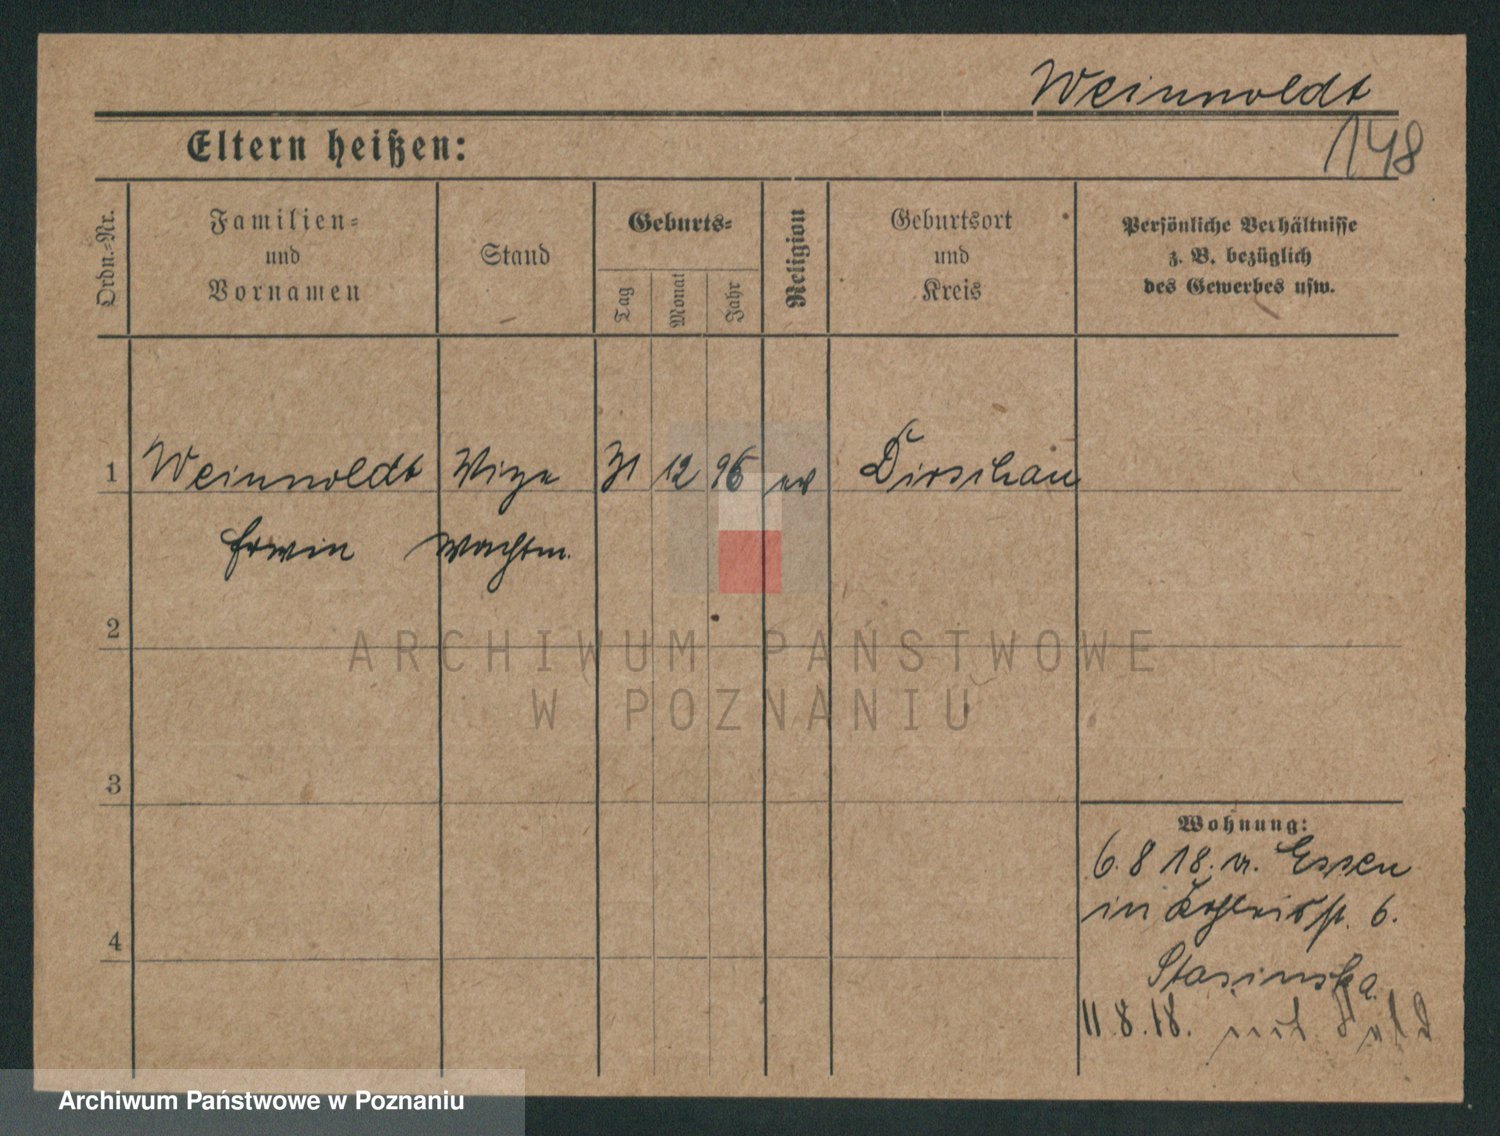 Weinnoldt
148
Eltern heißen:
Ordn.-Nr.
Familien-
und
Vornamen
Stand
Geburts-
Tag
Monat
Jahr
Religion
Geburtsort
und
Kreis
Persönliche Verhältnisse
z. B. bezüglich
des Gewerbes usw.
1 Weinnoldt Vize 31 12 96 ev Dirschau
Erwin Wachtm.
2
ARCHIWUM PAŃSTWOWE
W POZNANIU
3
Wohnung:
6. 8 18. v. Essen
in 6.
4
Stasinska
11.8.18.
Archiwum Państwowe w Poznaniu